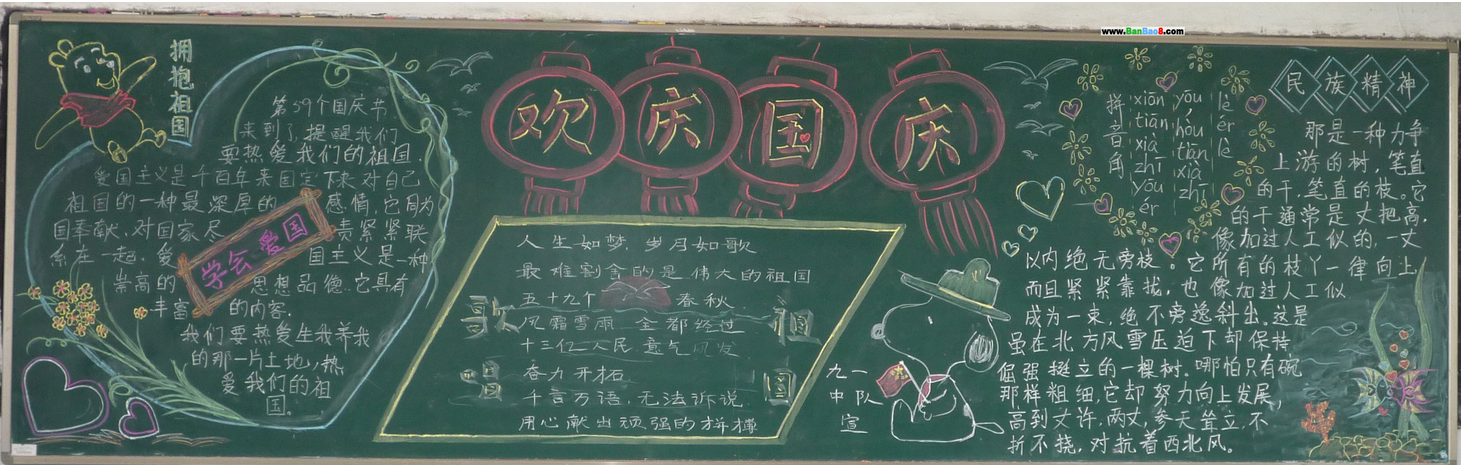 www.BanBao8.com
拥抱祖国
第59个国庆节
来到了,提醒我们
要热爱我们的祖国.
爱国主义是千百年来固定下来对自己
祖国的一种最深厚的感情,它同为
国奉献,对国家尽责紧紧联
系在一起.爱国主义是一种
崇高的思想品德.它具有
丰富的内容.
我们要热爱生我养我
的那一片土地,热
爱我们的祖
国。
学会爱国
欢庆国庆
人生如梦,岁月如歌
最难割舍的是伟大的祖国
五十九个春秋
风霜雪雨 全都经过
十三亿人民 意气风发
奋力开拓
千言万语,无法诉说
用心献出顽强的拼搏
歌
唱
祖
国
九一
中队
宣
拼音角
xiān yōu lè
tiān hóu ér
xià tiān lè
zhī xià
yóu zhī
ér
民族精神
那是一种力争
上游的树,笔直
的干,笔直的枝。它
的干通常是丈把高,
像加过人工似的,一丈
以内绝无旁枝。它所有的枝丫一律向上
而且紧紧靠拢,也像加过人工似
成为一束,绝不旁逸斜出。这是
虽在北方风雪压迫下却保持
倔强挺立的一棵树。哪怕只有碗
那样粗细,它却努力向上发展,
高到丈许,两丈,参天耸立,不
折不挠,对抗着西北风。